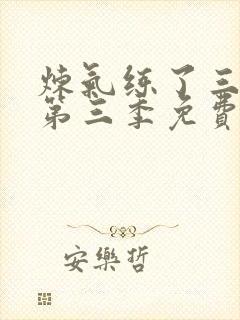 炼氣练了三
第三季免費
安樂哲